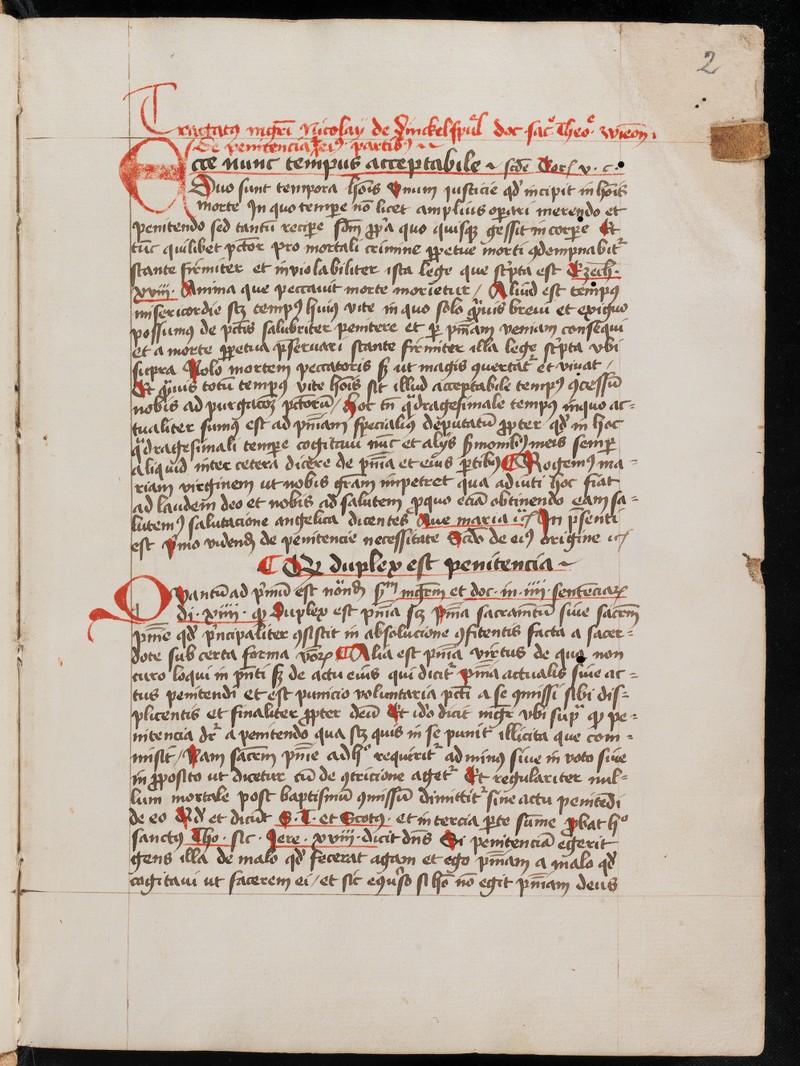 2
Tractatus mgri Nicolay de Dinckelspul doc· sac· theo· wieon·
De penitencia et eius partibus
Ecce nunc tempus acceptabile scde Cor v· c·
Duo sunt tempora hois Vnum iusticie qd incipit in hois
morte In quo tempe no licet amplius opari merendo et
penitendo sed tantu recipe sdm ppa quo quisqz gessit in corpe Et
tuc quilibet pctor pro mortali crimine ppetue morti 9dempnabit
stante firmiter et inuiolabiliter ista lege que scpta est Ezech·
xviii· Anima que peccauit morte morietur / Aliud est tempus
misericordie scz tempus huius vite in quo solo quis breui et exiguo
possumus de pctis salubriter penitere et per pniam veniam consequi
et a morte ppetua pseruari stante firmiter illa lege scpta vbi
supra Nolo mortem peccatoris sz ut magis 9uertat et viuat /
Et quis totu tempus vite hois sit illud acceptabile tempus 9cessu
nobis ad purgacoz pctoru / hoc tn qdragesimale tempus in quo ac=
tualiter sumus est ad pniam specialius deputatu ppter qd in hoc
qdragesimali tempe cogitaui nuc et alys smonibus meis semp
aliquid inter cetera dicere de pnia et eius ptibus Rogemus ma=
riam virginem ut nobis gram impetret qua adiuti hoc fiat
ad laudem deo et nobis ad salutem p quo ecia obtinendo eam sa=
lutemus salutacione angelica dicentes Aue maria In psenti
est pmo videnda de penitencie necessitate Scdo de eius origine
Qz duplex est penitencia
Quantu ad pmu est nonda sm mgrem et doc· in iiii sentenciarz
di· xiiii· qz Duplex est pnia scz pnia sacramtu siue sacrm
pnie qd pncipaliter 9sistit in absolucione 9fitentis facta a sacer=
dote sub certa forma vborz Alia est pnia virtus de qua non
curo loqui in pnti sz de actu eius qui dicit pnia actualis siue ac=
tus penitendi et est punicio voluntaria pcti a se 9missi sibi dis=
plicentis et finaliter ppter deu Et ido dicit mgr vbi sup qz pe=
nitencia dr a penitendo qua scz quis in se punit illicita que com=
misit / Nam sacrm pnie ad h requirit ad minus siue in voto siue
in pposito ut dicetur cu de 9tricione aget Et regulariter nul=
lum mortale post baptismu 9missu dimittit sine actu penitedi
de eo Vn et dicut S· T· et Scotus· et in tercia pte sume probat h
sanctus Tho· sic· Jere· xviii· dicit dns Si penitencia egerit
gens illa de malo qd fecerat agam et ego pniam a malo qd
cogitaui ut facerem ei / et sic e9uso si ho no egit pniam deus